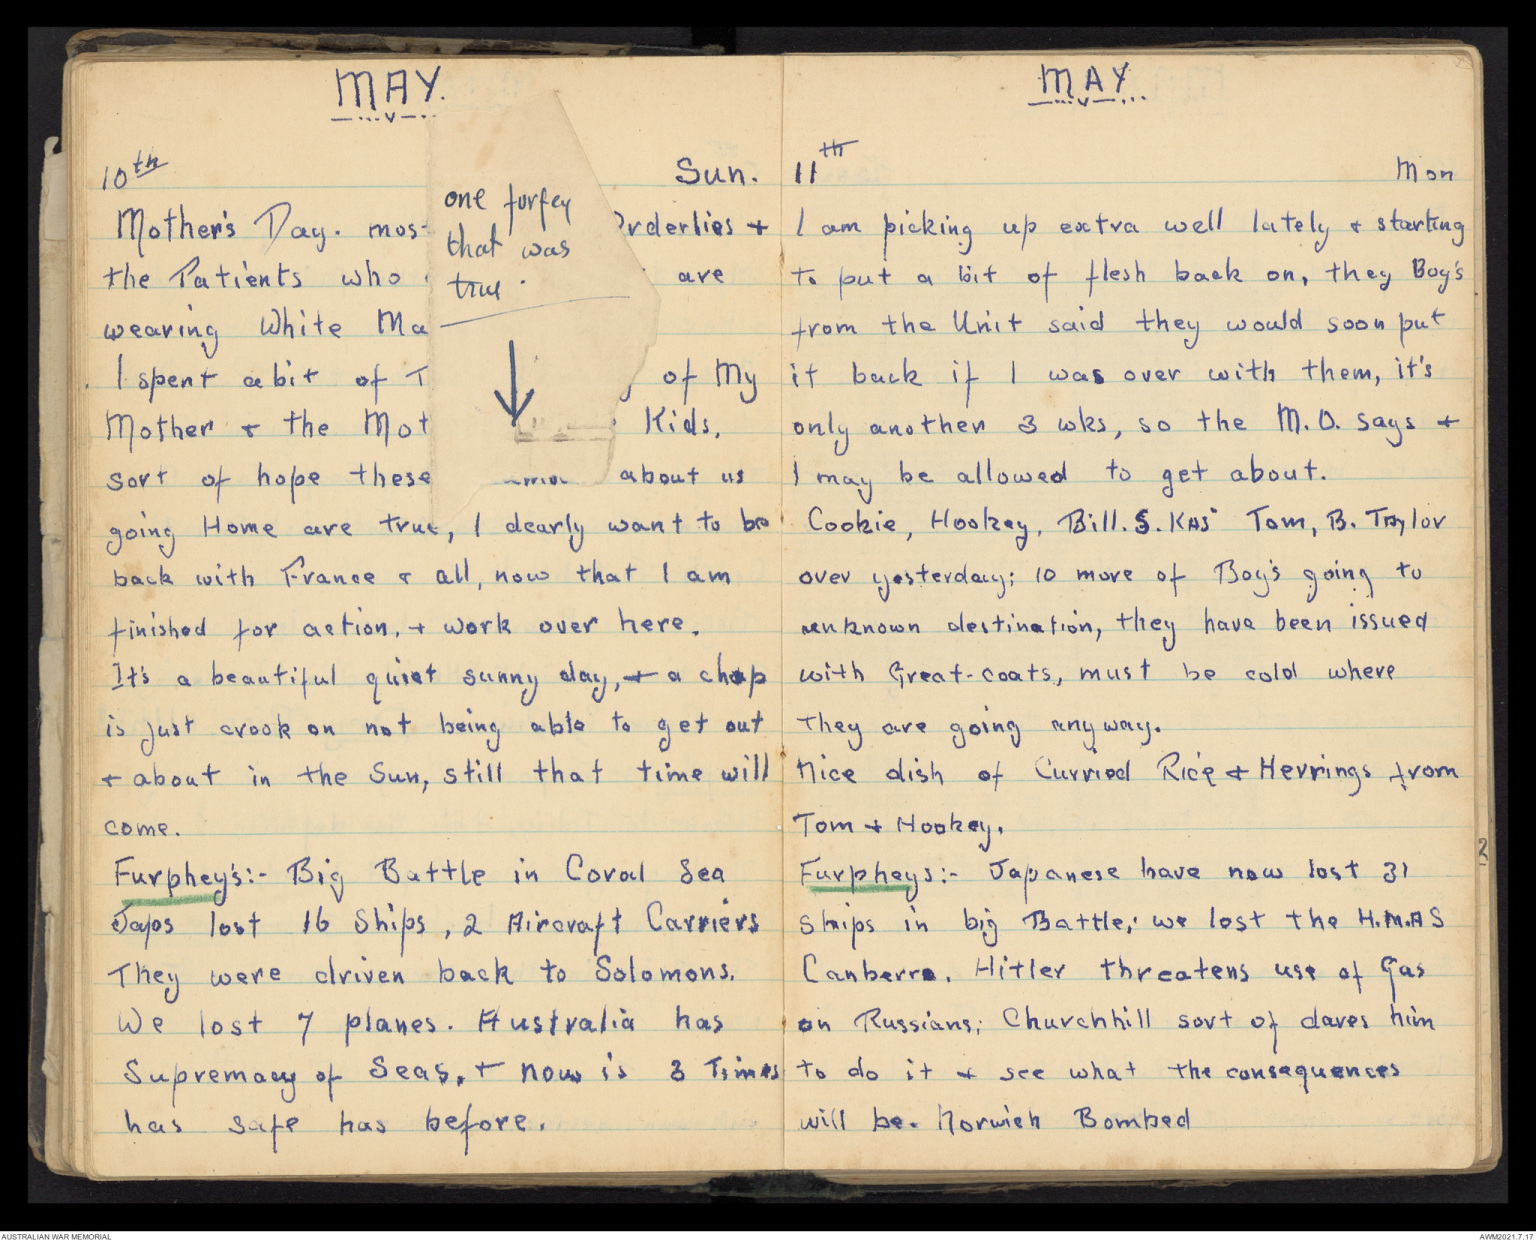 MAY.
10th Sun.
Mother's Day. mos Orderlies +
the Patients who are
wearing White Ma
I spent a bit of T of My
Mother + the Mot Kids.
sort of hope these about us
going Home are true, I dearly want to be
back with France + all, now that I am
finished for action. + work over here.
It's a beautiful quiet sunny day, + a chap
is just crook on not being able to get out
+ about in the Sun, still that time will
come.
Furphey's:- Big Battle in Coral Sea
Japs lost 16 Ships, 2 Aircraft Carriers
They were driven back to Solomons.
We lost 7 planes. Australia has
Supremacy of Seas, + now is 3 Times
has safe has before.
one furfey
that was
true.
MAY.
11th Mon
I am picking up extra well lately + starting
to put a bit of flesh back on, they Boy's
from the Unit said they would soon put
it back if I was over with them, it's
only another 3 wks, so the M.O. says +
I may be allowed to get about.
Cookie, Hookey, Bill. S. Kas Tom, B. Taylor
over yesterday; 10 more of Boy's going to
unknown destination, they have been issued
with Great-coats, must be cold where
they are going anyway.
Nice dish of Curried Rice + Herrings from
Tom + Hookey.
Furpheys:- Japanese have now lost 31
ships in big Battle; we lost the H.M.A S
Canberra. Hitler threatens use of Gas
on Russians; Churchhill sort of dares him
to do it + see what the consequences
will be. Norwich Bombed
AUSTRALIAN WAR MEMORIAL
AWM2021.7.17